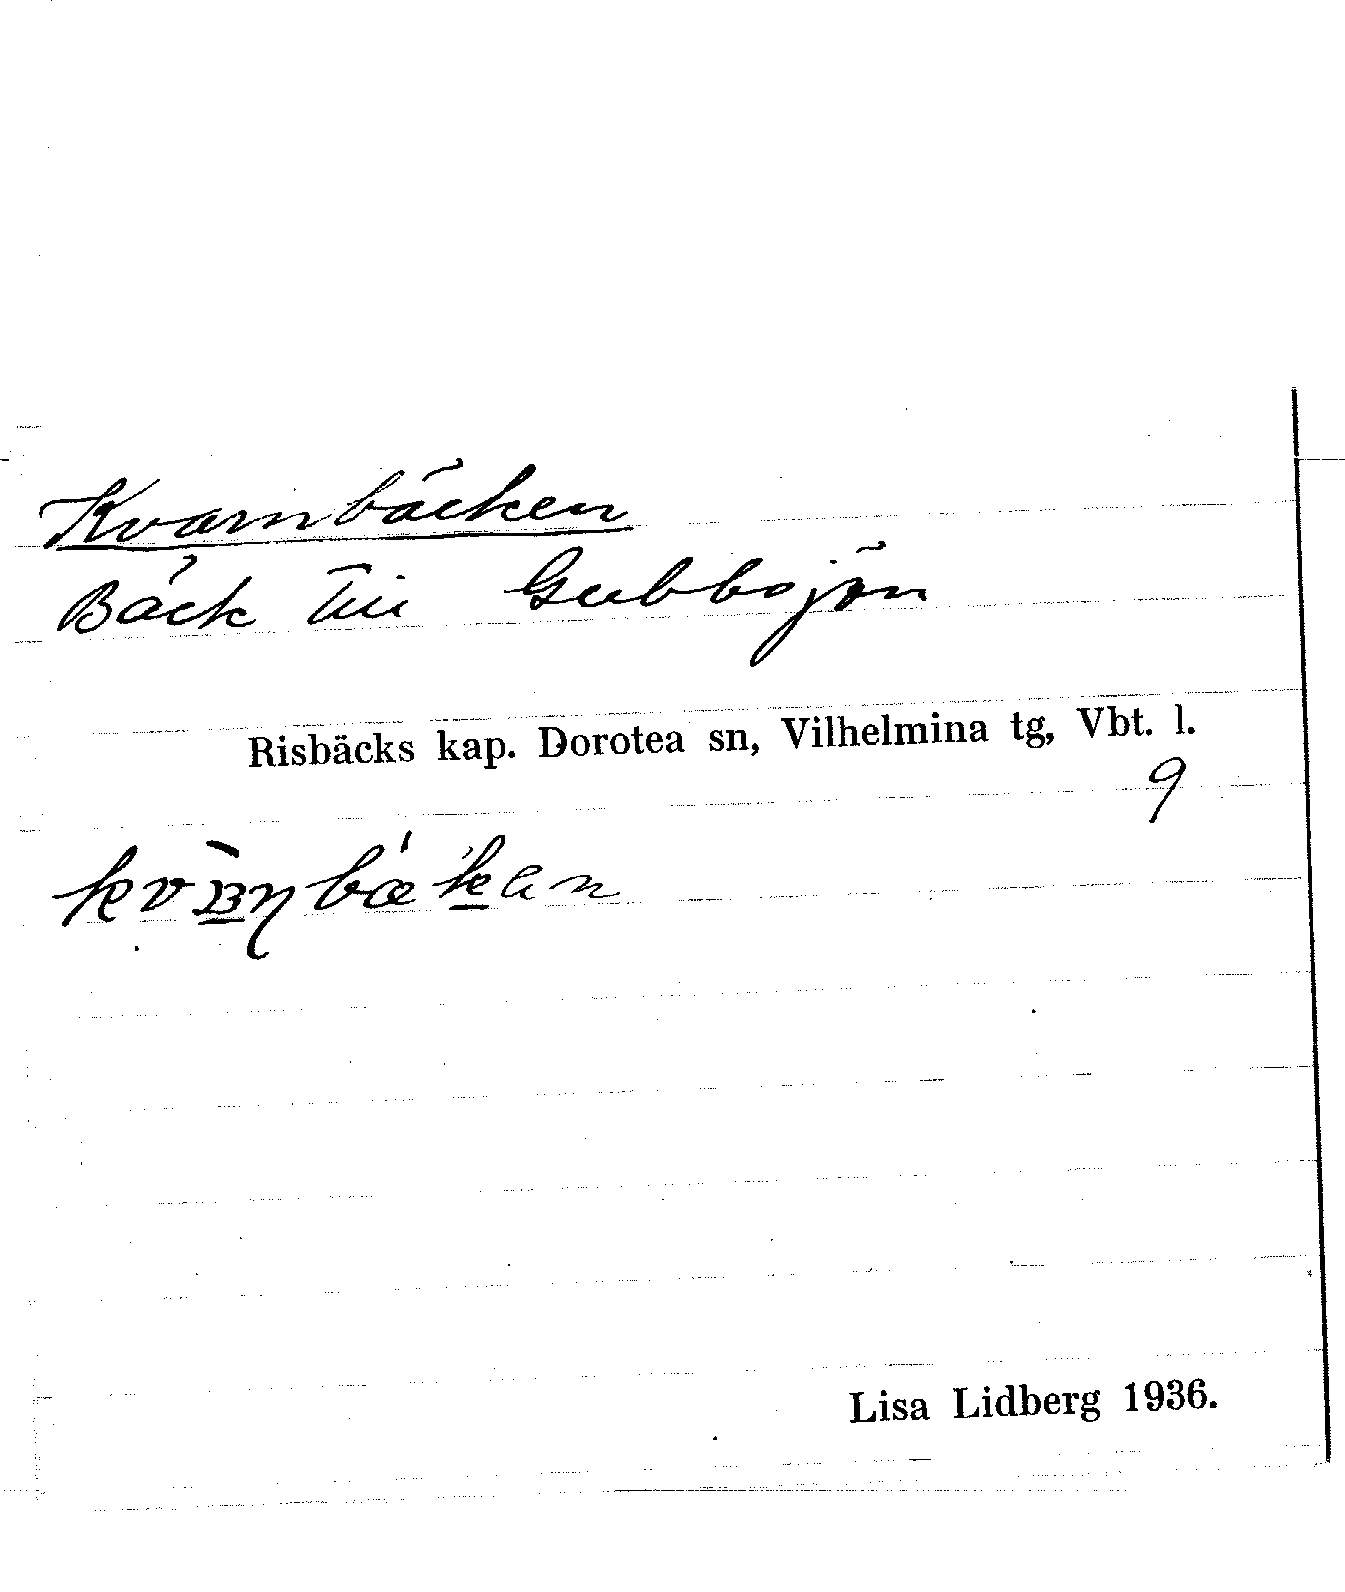 Kvarnbäcken
Bäck till Gubbsjön
Risbäcks kap. Dorotea sn, Vilhelmina tg, Vbt. l.
9
Lisa Lidberg 1936.